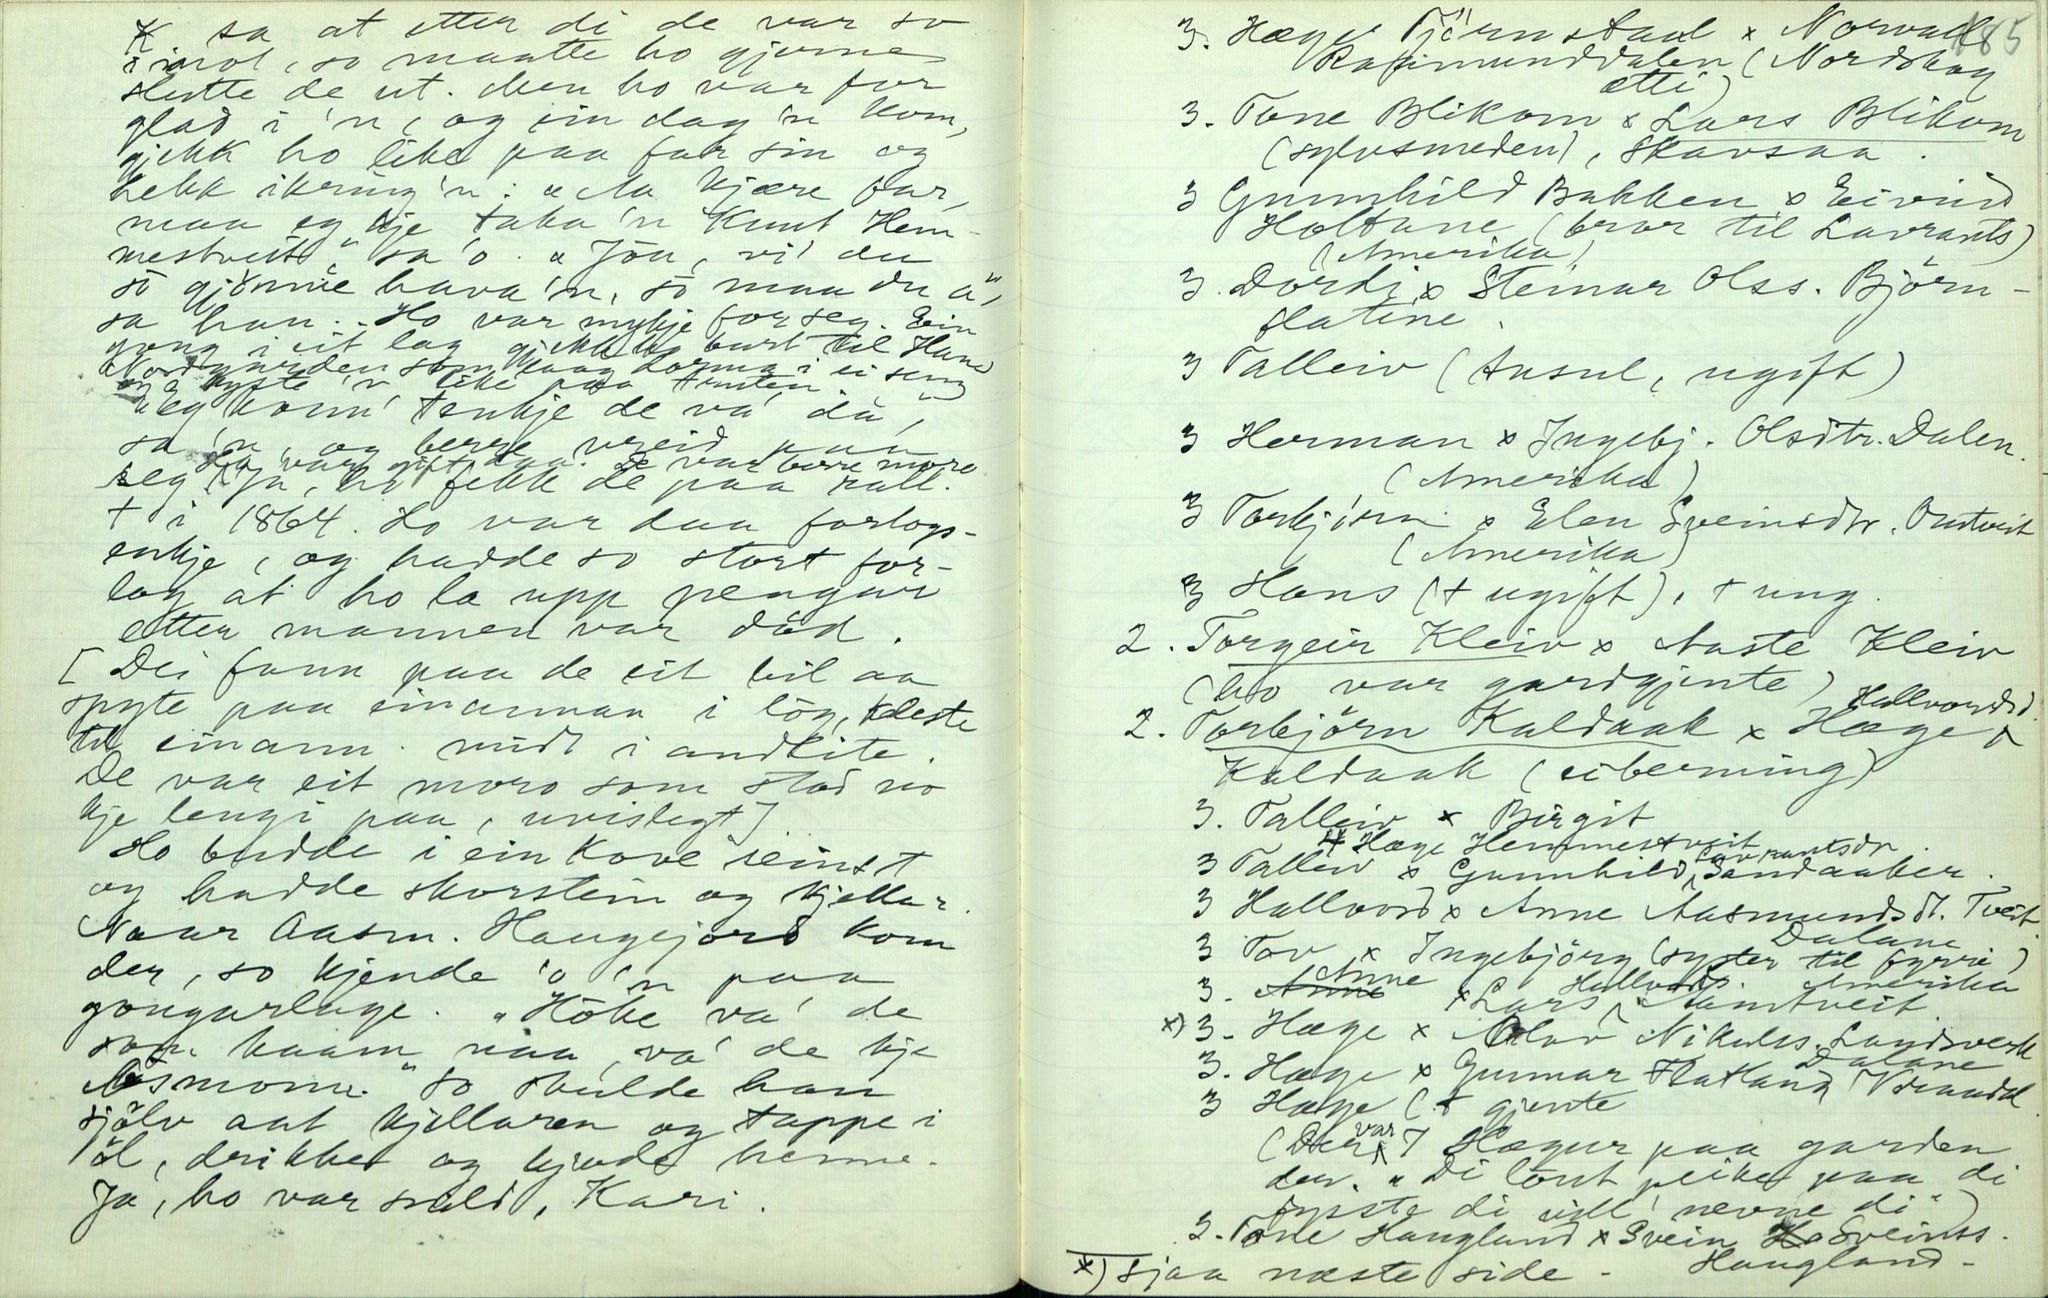 K sa at etter di de var so
imot, so maatte ho gjerne
slutte de ut. Men ho var for
glad i 'n, og ein dag 'n kom,
gjekk ho like paa far sin og
hekk ikring 'n: "Aa kjære far,
maa eg kje taka 'n Knut Hem-
mestveit," sa 'o. "Jōu, vi' du
so gjönne hava 'n, so maa du a",
sa han. Ho var mykje for seg. Ein
gong i eit lag gjekk ho burt til Hans
Nordgarden som laag i ei seng
og kyste 'n like paa truten.
"Eg konn' tenkje de va' då",
sa 'n, og berre vreid paa
seg. Ho var gift daa. De var berre moro.
Ja, ho fekk de paa rall.
† i 1864. Ho var daa forlogs-
enkje, og hadde so stort for-
log at ho la upp pengar
etter mannen var död.
[Dei fann paa de eit bil aa
spyte paa einannan i lög, kleste
til einann. midt i andlite.
De var eit moro som stod no
kje lengi paa, uvislegt]
Ho budde i ein kove
og hadde skorstein og kjellar.
Naar Aasm. Haugejord kom
der, so kjende 'o 'n paa
gongarlage. "Höke va' de
som kaam naa, va' de kje
Åsmonn." So skulde han
sjölv aat kjellaren og tappe i
öl, drikke og kjrode henne.
Ja, ho var snild, Kari.
185
3. Hæge Tjörnstaul x Norvald
Rafimunddalen (Nordskog
ætti)
3. Tone Blikom x Lars Blikom
(sylvsmeden), Skavsaa.
3 Gunnhild Bakken x Eivind
Holtane (bror til Lavrants)
(Amerika)
3. Dordi x Steinar Olss. Björn-
flatine.
3 Talleiv (Ansul, ugift)
3 Herman x Ingebj. Olsdtr. Dalen.
(Amerika)
3 Torbjörn x Elen Sveinsdtr. Ontveit
(Amerika)
3 Hans († ugift), † ung.
2. Torgeir Kleiv x Aaste Kleiv
(ho var gardgjente)
2. Torbjörn Kaldaak x Hæge Hallvordsd.
Kaldaak (eiberning)
3. Talleiv x Birgit
4 Hæge Hemmestveit
3 Talleiv x Gunnhild Lavrantsdr Sandaaker.
3 Hallvord x Anne Aasmundsdt. Tveit.
3 Tov x Ingebjörg Dalane (syster til fyrri)
3. Anne x Lars Hallvords. Aamtveit. Amerika
x) 3. Hæge x Olav Nikulss. Landsverk
3. Hæge x Gunnar Flatland Dalane Vraadal
3 Hæge († gjente
(Der var 7 Hægur paa garden
der. "Di lout peike paa di
fysste di vill' nevne di")
2. Tone Haugland x Svein Sveinss.
Haugland.
x) sjaa næste side.